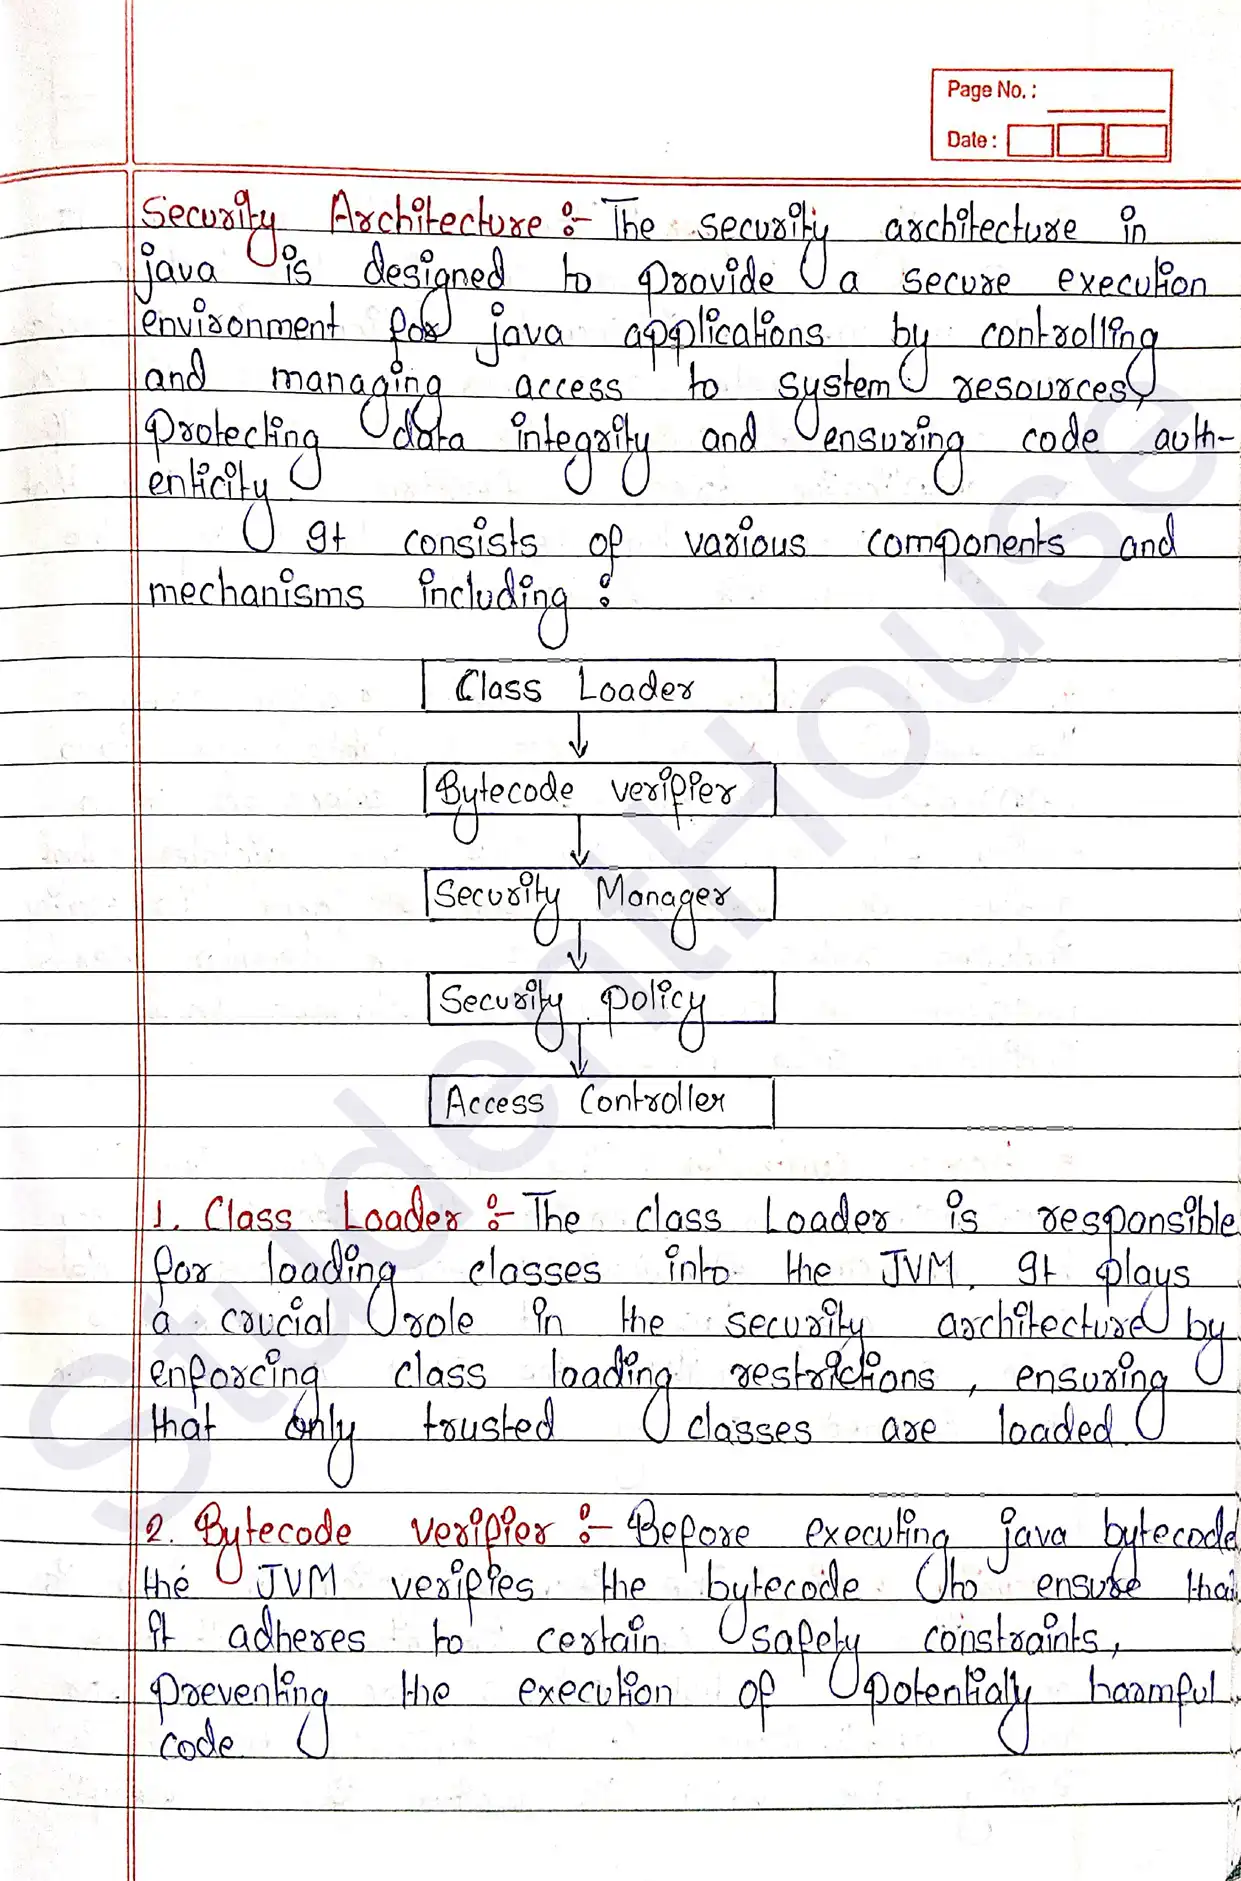 Page No. :
Date :
Security Architecture :- The security architecture in
java is designed to provide a secure execution
environment for java applications by controlling
and managing access to system resources,
protecting data integrity and ensuring code auth-
enticity
It consists of various components and
mechanisms including :
Class Loader
Bytecode verifier
Security Manager
Security policy
Access Controller
1. Class Loader :- The class Loader is responsible
for loading classes into the JVM. It plays
a crucial role in the security architecture by
enforcing class loading restrictions, ensuring
that only trusted classes are loaded.
2. Bytecode verifier :- Before executing java bytecode
the JVM verifies the bytecode to ensure that
it adheres to certain safety constraints,
preventing the execution of potentialy harmful
code
StudentHouse